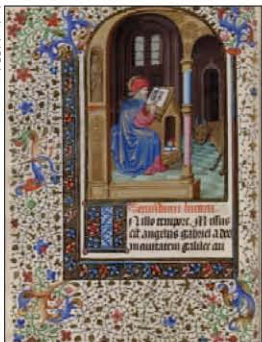 Secundum lucam
In illo tempore. Missus
est angelus gabriel a deo
in civitatem galilee cui